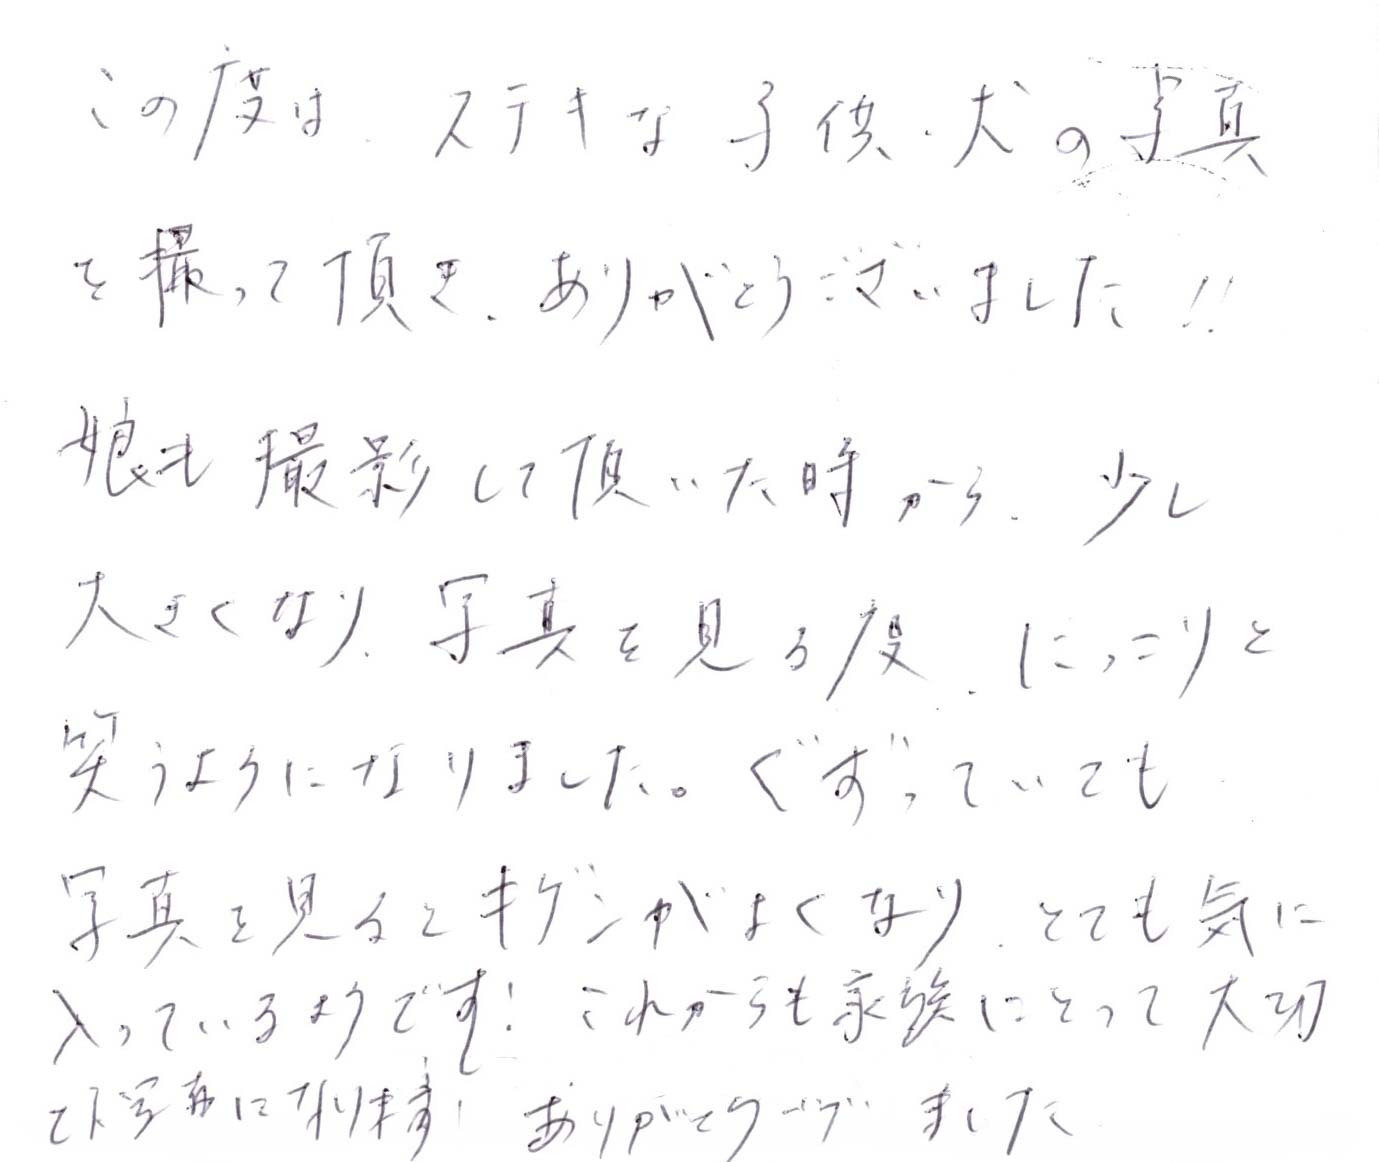 この度は、ステキな子供、犬の写真
を撮って頂き、ありがとうございました!!
娘も撮影して頂いた時から、少し
大きくなり、写真を見る度、にっこりと
笑うようになりました。ぐずっていても
写真を見るとキゲンがよくなり、とても気に
入っているようです! これからも家族にとって大切
な写真になります! ありがとうございました